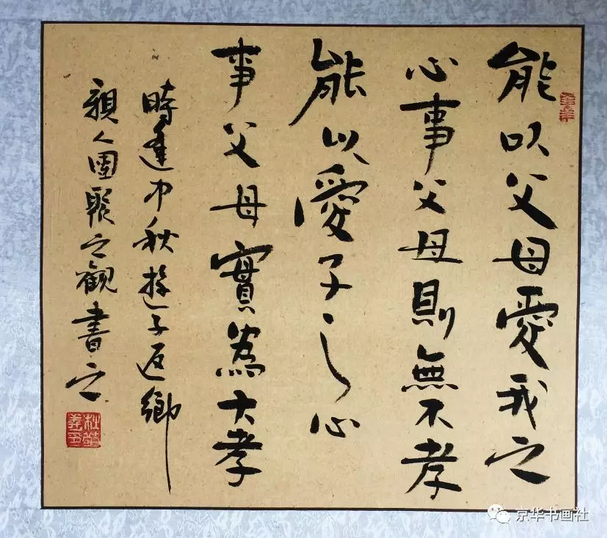 能以父母愛我之
心事父母則無不孝
能以愛子之心
事父母實為大孝
時逢中秋遊子返鄉
親人團聚之觀書之
京华书画社